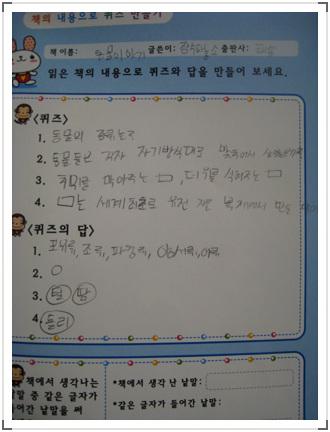 책의 내용으로 퀴즈 만들기
책 이름: 동물이야기 글쓴이: 출판사:
읽은 책의 내용으로 퀴즈와 답을 만들어 보세요.
<퀴즈>
1. 동물의 종류는?
2. 동물들은 각자 자기방식대로
3. 추위를 막아주는 □, 더위를 식히는 □
4. □는 세계최초로 유전 복제
<퀴즈의 답>
1. 포유류, 조류, 파충류, 양서류, 어류
2. O
3. 털 땀
4. 돌리
책에서 생각나는
낱말 중 같은 글자가
들어간 낱말을 써
*책에서 생각 난 낱말:
*같은 글자가 들어간 낱말: